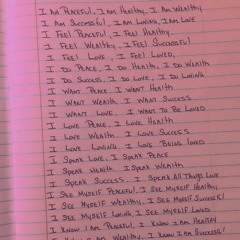 I Am Peaceful, I Am Healthy, I Am Wealthy
I Am Successful, I Am Loving, I Am Love
I Feel Peaceful, I Feel Healthy
I Feel Wealthy, I Feel Successful
I Feel Love, I Feel Loved,
I Do Peace, I Do Health, I Do Wealth
I Do Success, I Do Love, I Do Loving
I Want Peace, I Want Health
I Want Wealth, I Want Success
I Want Love, I Want To Be Loved
I Love Peace, I Love Health
I Love Wealth, I Love Success
I Love Loving, I Love Being Loved
I Speak Love, I Speak Peace
I Speak Health, I Speak Wealth
I Speak Success, I Speak All Things Love
I See Myself Peaceful, I See Myself Healthy,
I See Myself Wealthy, I See Myself Success!
I See Myself Loving, I See Myself Loved
I Know I Am Peaceful, I Know I Am Healthy
I Am Wealthy, I Know I Am Success!